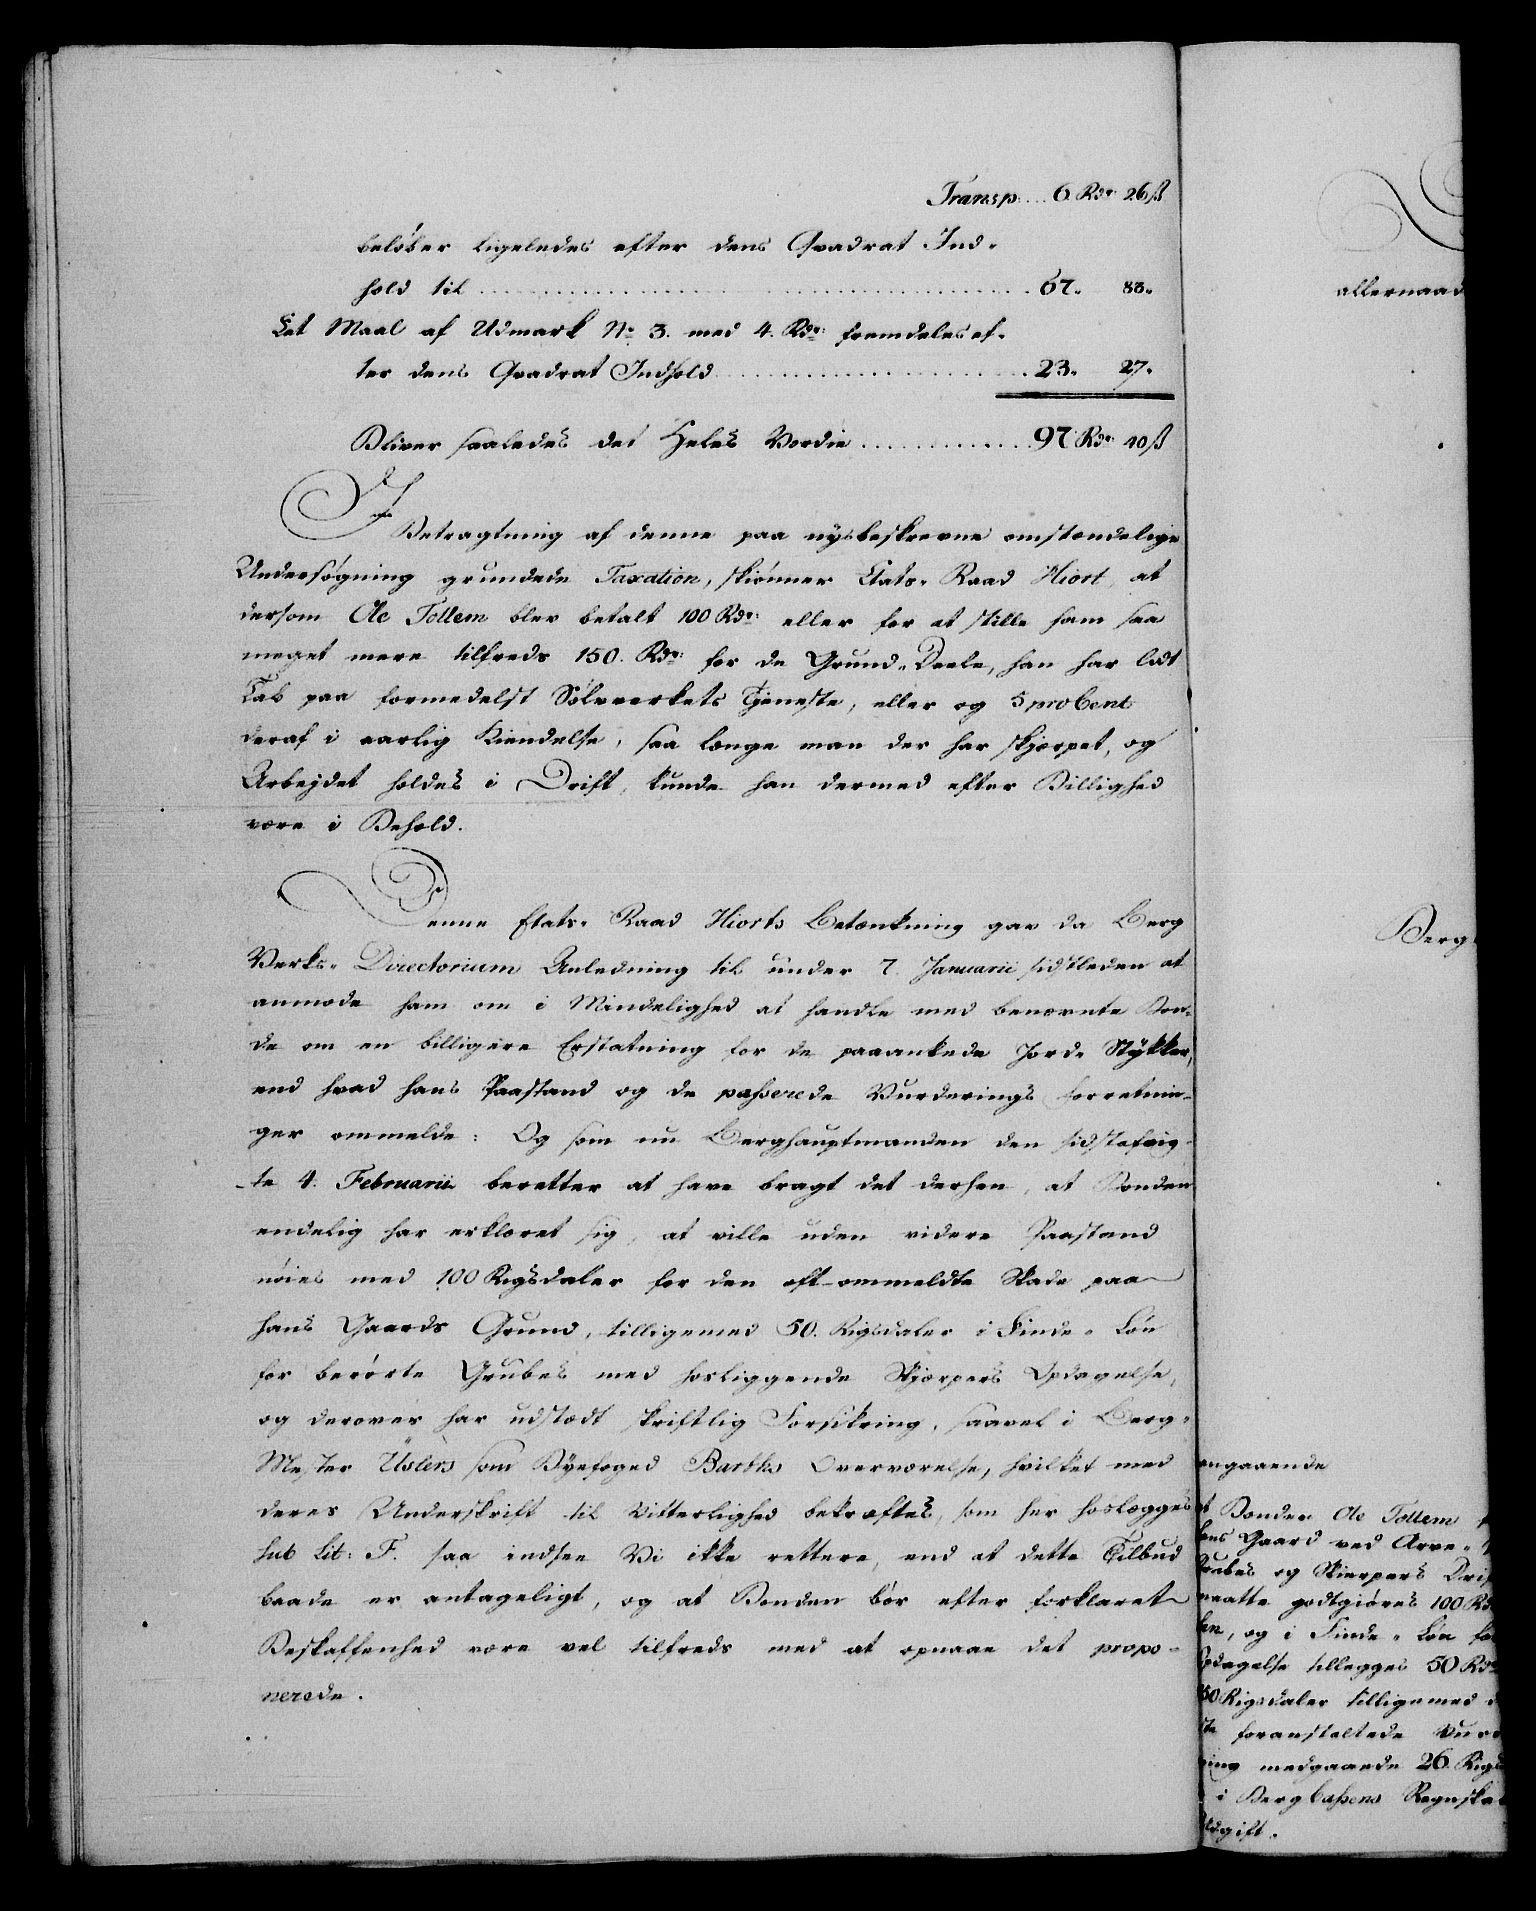 Transp: ... 6 Rdr: 26 ß
beløber ligeledes efter dens Qvadrat Ind-
hold til ... 67. 83.
Et Maal af Udmark No 3. med 4. Rdr: fremdeles ef-
ter dens Qvadrat Indhold ... 23. 27.
Bliver saaledes det Heles Værdie ... 97 Rdr: 40 ß
I Betragtning af denne paa nysbeskrevne omstændelige
Undersøgning grundede Taxation, skiønner Etats-Raad Hiort, at
dersom Ole Tollem blev betalt 100 Rdr: eller for at stille ham saa
meget mere tilfreds 150. Rdr: for de Grund-Deele, han har lidt
Tab paa formedelst Sølvverkets Tjeneste, eller og 5 pro Cent
deraf i aarlig Kiendelse, saa længe man der har skjærpet, og
Arbejdet holdes i Drift, kunde han dermed efter Billighed
være i Behold.
Denne Etats-Raad Hiorts Betænkning gav da Berg
Verks-Directorium Anledning til under 7. Januarii sidstleden at
anmode ham om i Mindelighed at handle med benævnte Bon-
de om en billigere Erstatning for de paaankede Jorde Stykker,
end hvad hans Paastand og de passerede Vurderings forretnin-
ger ommelde: Og som nu Berghauptmanden den sidstafvig-
te 4. Februarii beretter at have bragt det derhen, at Bonden
endelig har erklæret sig, at ville uden videre Paastand
nøies med 100 Rigsdaler for den oft ommeldte Skade paa
hans Gaards Grund, tilligemed 50. Rigsdaler i Finde-Løn
for berørte Grubes med hosliggende Skjærpers Opdagelse,
og derover har udstædt skriftlig Forsikring, saavel i Berg-
Mester Üslers som Byefoged Barths Overværelse, hvilket med
deres Underskrift til Vitterlighed bekræftes, som her hoslægges
sub Lit: F. saa indsee Vi ikke rettere, end at dette Tilbud
baade er antageligt, og at Bonden bør efter forklaret
Beskaffenhed være vel tilfreds med at opnaae det propo-
nerede.
allernaad
Berg-
angaaende
at Bonden Ole Tollem
hans Gaard ved Arve-
Grubes og Skierpers Drif
maatte godtgiøres 100 Rdr
len, og i Finde-Løn for
Opdagelse tillegges 50 Rdr
150 Rigsdaler tilligemed d
te foranstaltede Vurd
ning medgaaende 26 Rigsd
i Berg Cassens Regnskab
Udgift.